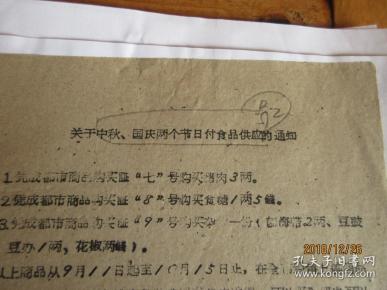 关于中秋、国庆两个节日付食品供应的通知
1.凭成都市商品购买证“七”号购买猪肉3两。
2.凭成都市商品购买证“8”号购买食糖1两5钱。
3.凭成都市商品购买证“9”号购买 一份( 2两、豆豉
豆办1两,花椒两钱)。
以上商品从9月11日起至10月15日止,在全
2018/12/26
孔夫子旧书网